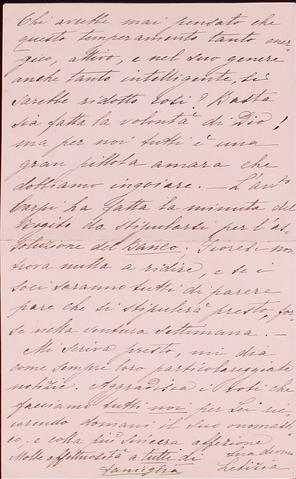 Chi avrebbe mai pensato che
questo temperamento tanto ener
gico, attivo, e nel suo genere
anche tanto intelligente, si
sarebbe ridotto così? Basta
sia fatta la volontà di Dio!
ma per noi tutti è una
gran pillola amara che
dobbiamo ingoiare. - L'avv.to
Carpi ha fatta la minuta del
Rogito da stipularsi per l'as
soluzione del Banco. Fiores non
trova nulla a ridire, e se i
soci saranno tutti di parere
pare che si stipulerà presto, for
se nella ventura settimana. -
Mi scriva presto, mi dia
come sempre loro particolareggiate
notizie. Aggradisca i voti che
facciamo tutti noi per Lei ri
correndo domani il suo onomasti
co, e colla più sincera affezione
Molte affettuosità a tutti di Sua
famiglia Letizia